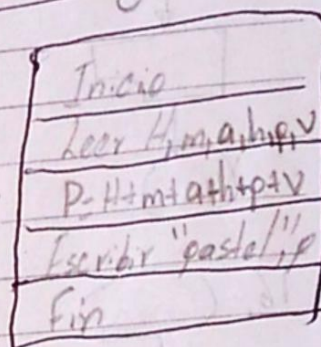 Inicio
Leer H, m, a, h, p, v
P= H+m+a+h+p+v
Escribir "pastel", p
Fin